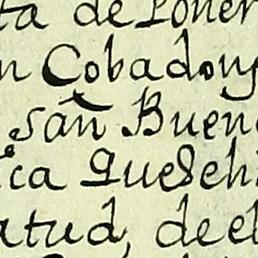 ta de Poner
n Cobadong
San Buen
ica Que Seh
atud, de el